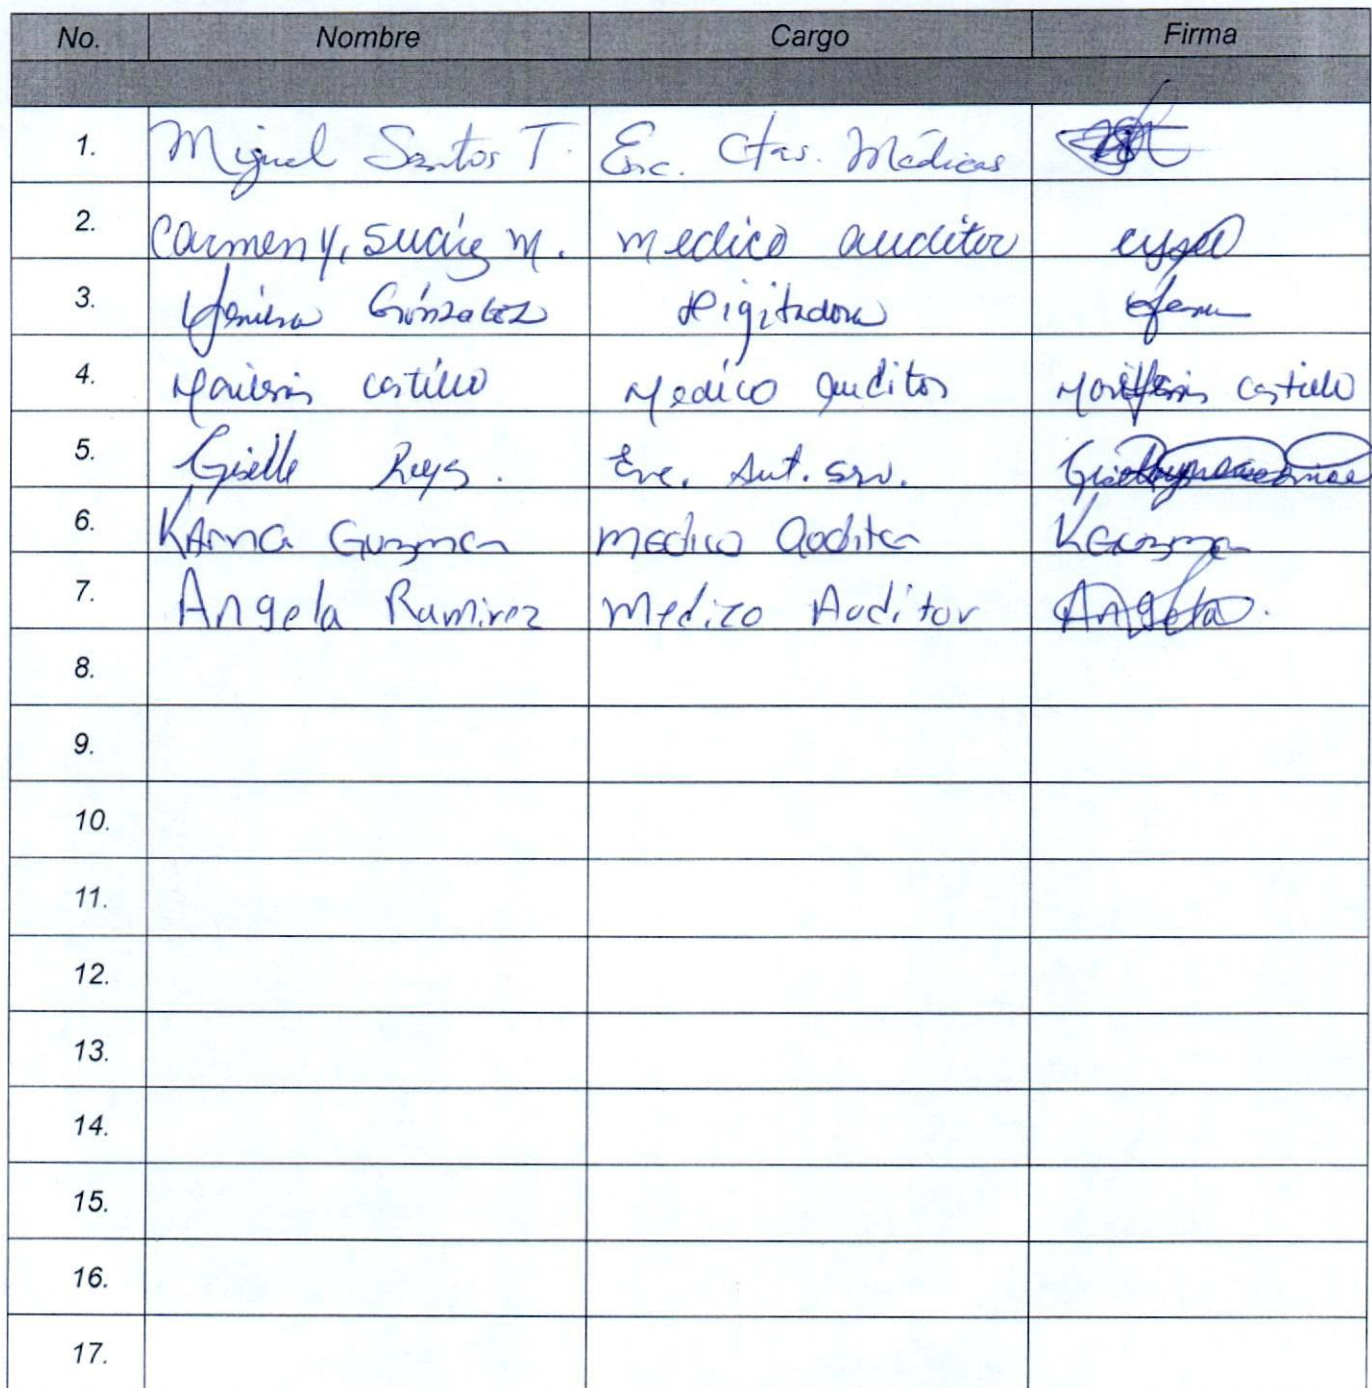 No. Nombre Cargo Firma
1. Miguel Santos T. Enc. Ctas. Médicas
2. Carmen Y, Suárez M. medico auditor
3. González Digitadora
4. castillo Medico Auditor castillo
5. Giselle Reys. Enc. Aut. Srv.
6. Karina Guzman medico Auditor KGuzman
7. Angela Ramirez Medico Auditor Angela
8.
9.
10.
11.
12.
13.
14.
15.
16.
17.